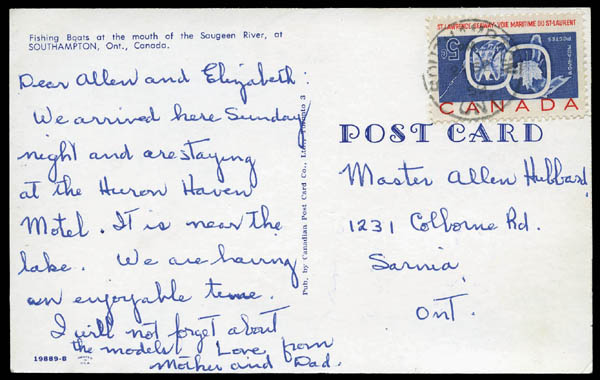 Fishing Boats at the mouth of the Saugeen River, at
SOUTHAMPTON, Ont., Canada.
Dear Allen and Elizabeth:
We arrived here Sunday
night and are staying
at the Huron Haven
Motel. It is near the
lake. We are having
an enjoyable time.
I will not forget about
the models. Love from
Mother and Dad.
19889-B
Pub. by Canadian Post Card Co., Ltd., Toronto 3
ST. LAWRENCE SEAWAY·VOIE MARITIME DU ST-LAURENT
5¢
POSTES
CANADA
SOUTHAMPTON
POST CARD
Master Allen Hubbard
1231 Colborne Rd.
Sarnia,
Ont.